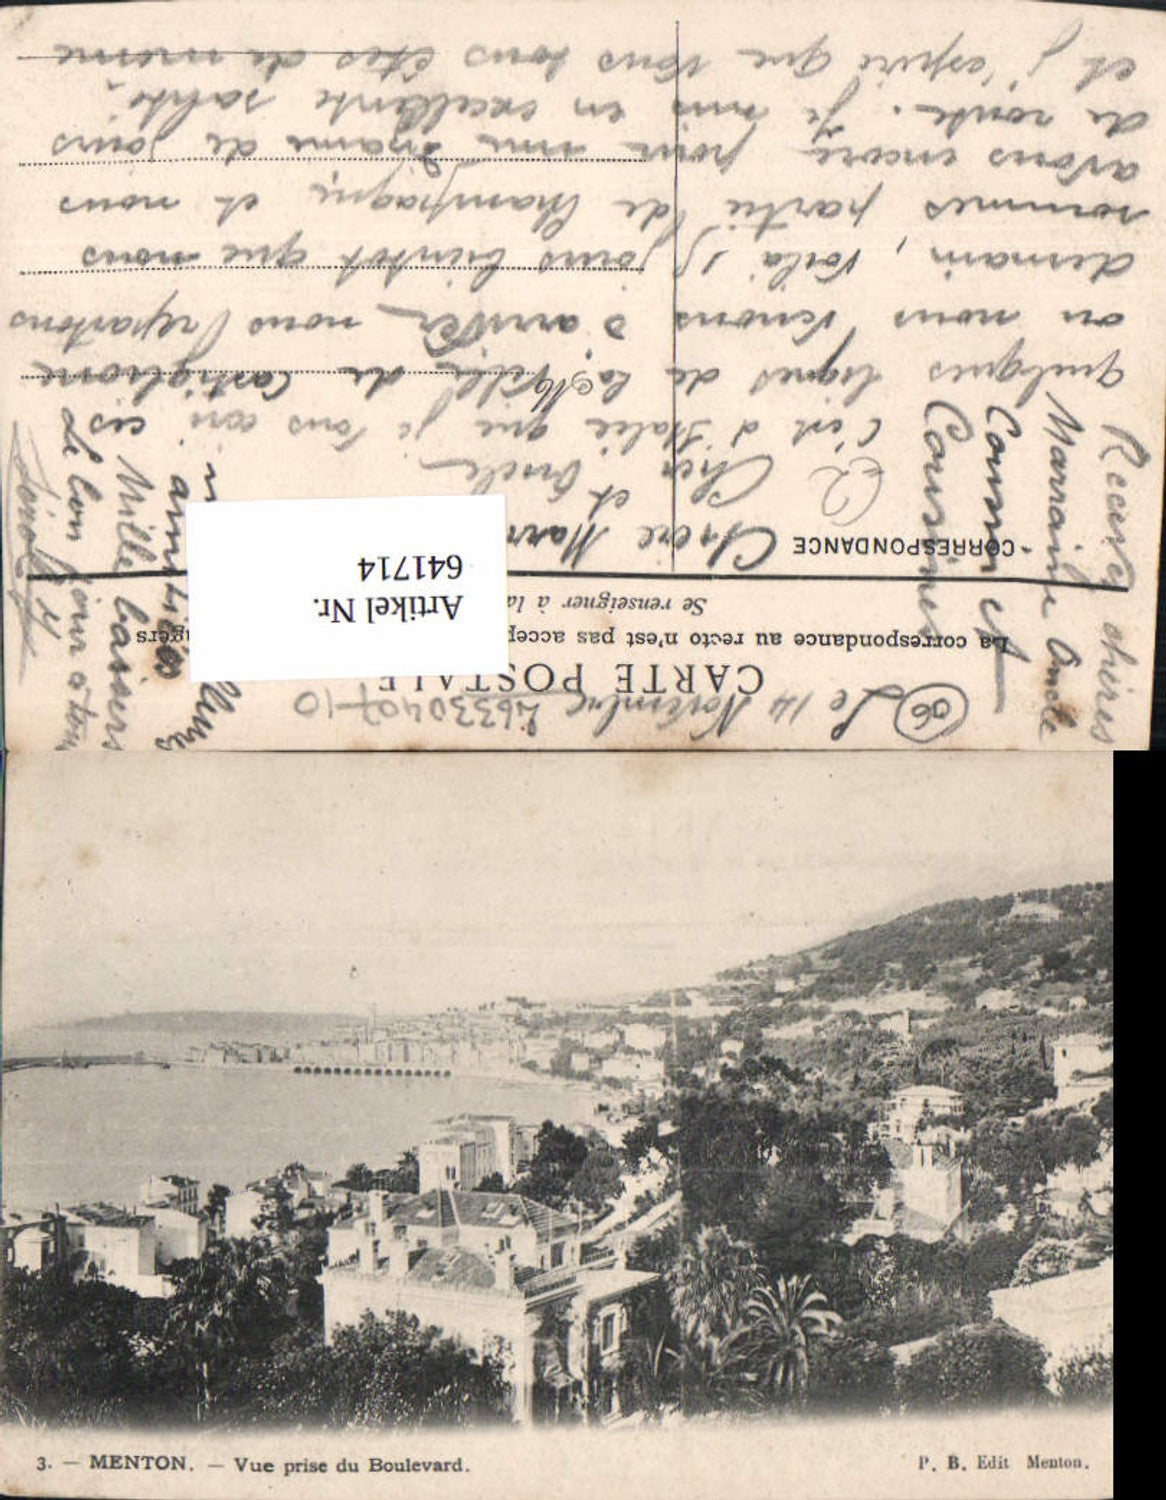 Le 14 Novembre L6330407-10
CARTE POSTALE
La correspondance au recto n'est pas accep
Se renseigner à la
Artikel Nr.
641714
CORRESPONDANCE
Chère Marr
et Oncle
Cher
C'est d'Italie que je vous écris ces
quelques lignes de la Ville de Castiglione
ou nous venons d'arriver, nous repartons
demain, voilà 15 jours bientôt que nous
sommes partis de Champagne et nous
avons encore pour une dizaine de jours
de route. Je suis en excellente santé,
et j'espère que vous tous êtes de même
Recevez chères
Marraine Oncle
Cousin et
Cousines
amitiés
Mille baisers
Le bonjour à tous
3. — MENTON. — Vue prise du Boulevard.
P. B. Edit Menton.